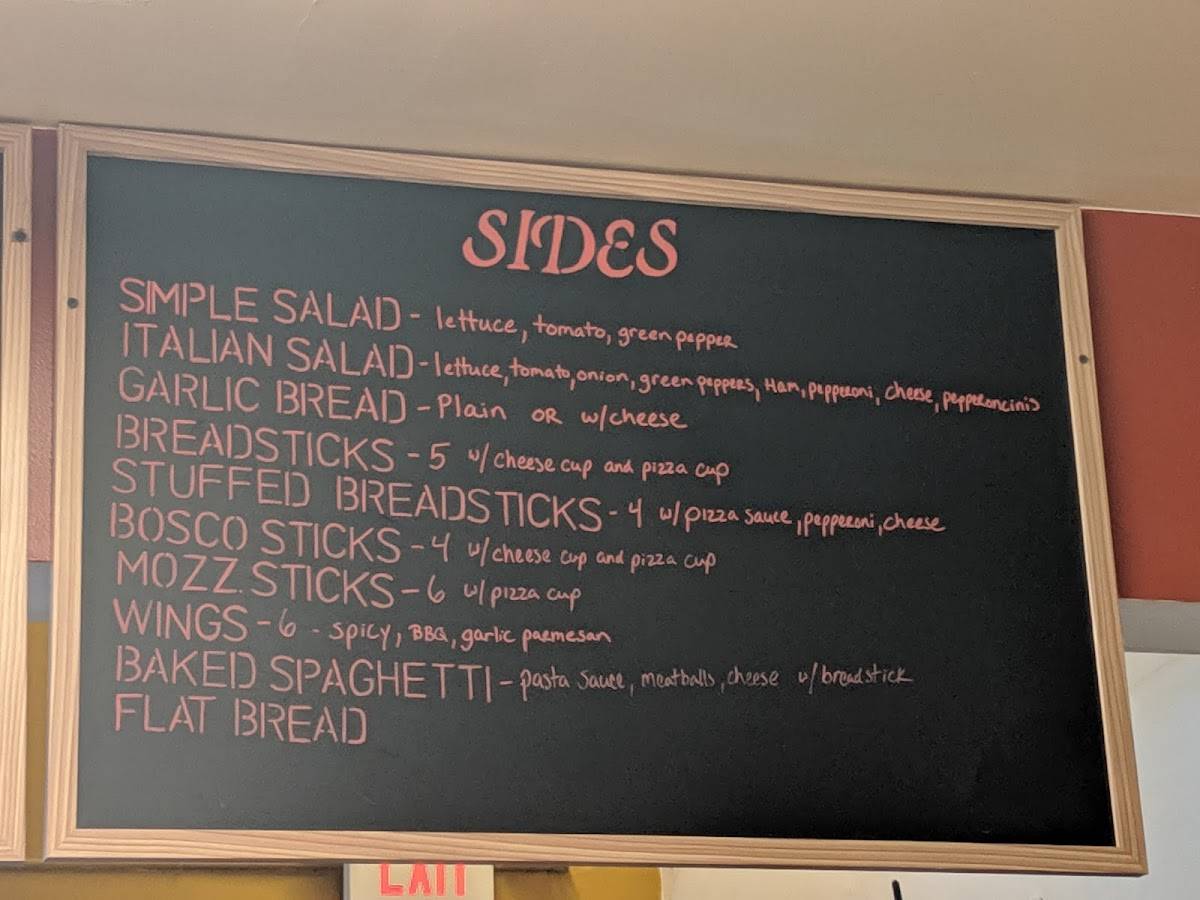 SIDES
SIMPLE SALAD - lettuce, tomato, green pepper
ITALIAN SALAD - lettuce, tomato, onion, green peppers, Ham, pepperoni, cheese, pepperoncinis
GARLIC BREAD - Plain OR w/cheese
BREADSTICKS - 5 w/ cheese cup and pizza cup
STUFFED BREADSTICKS - 4 w/ pizza sauce, pepperoni, cheese
BOSCO STICKS - 4 w/ cheese cup and pizza cup
MOZZ. STICKS - 6 w/ pizza cup
WINGS - 6 - spicy, BBQ, garlic parmesan
BAKED SPAGHETTI - pasta sauce, meatballs, cheese w/ breadstick
FLAT BREAD
EXIT